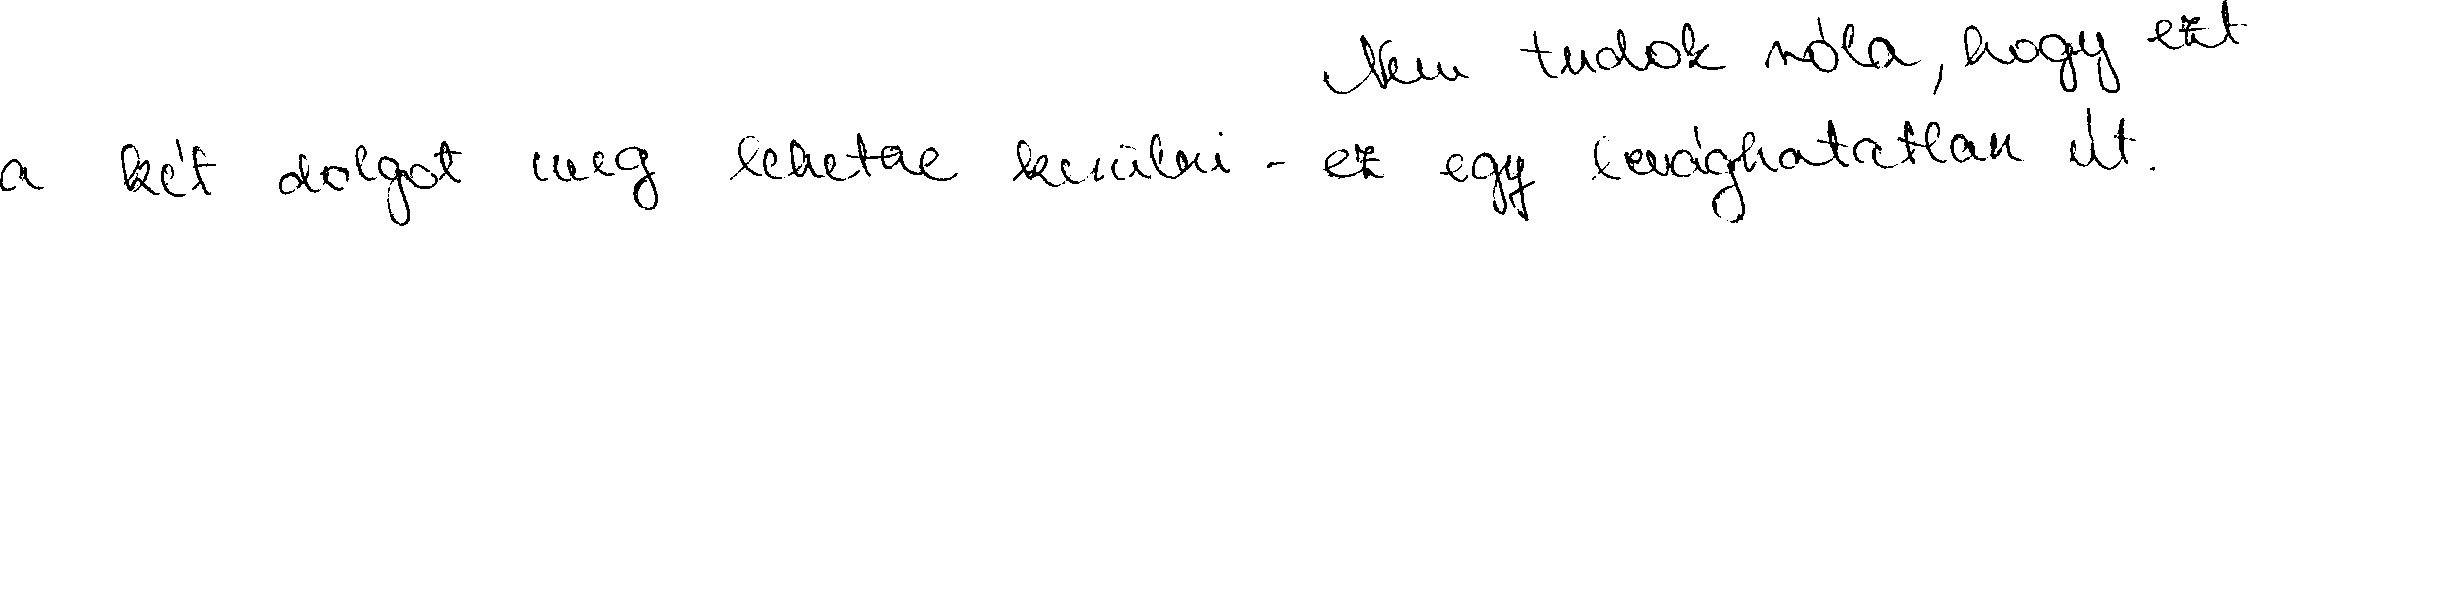 Nem tudok róla, hogy ezt
a két dolgot meg lehetne kerülni - ez egy levághatatlan út.